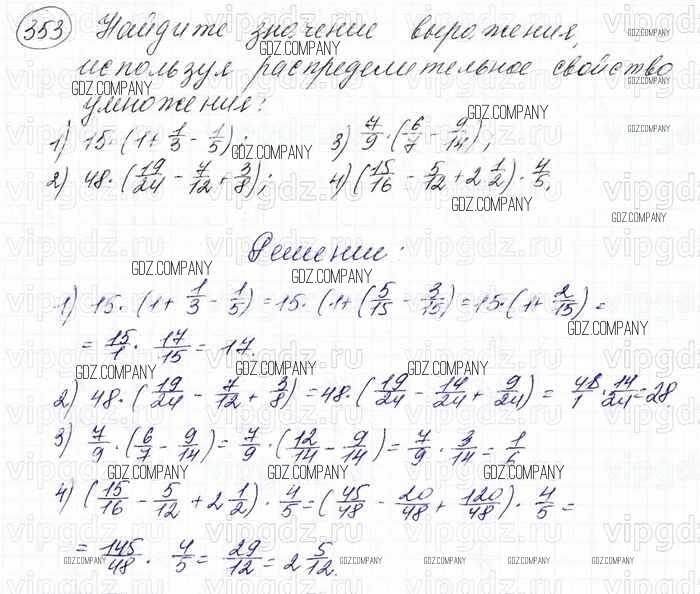 353 Найдите значение выражения,
используя распределительное свойство
умножения:
1) 15·(1+1/3-1/5); 3) 7/9·(6/7-9/14);
2) 48·(19/24-7/12+3/8); 4) (15/16-5/12+2 1/2)·4/5.
Решение:
1) 15·(1+1/3-1/5)=15·(1+(5/15-3/15)=15·(1+2/15)=
=15/1·17/15=17.
2) 48·(19/24-7/12+3/8)=48·(19/24-14/24+9/24)=48/1·14/24=28
3) 7/9·(6/7-9/14)=7/9·(12/14-9/14)=7/9·3/14=1/6
4) (15/16-5/12+2 1/2)·4/5=(45/48-20/48+120/48)·4/5=
=145/48·4/5=29/12=2 5/12.
GDZ.COMPANY
vipgdz.ru